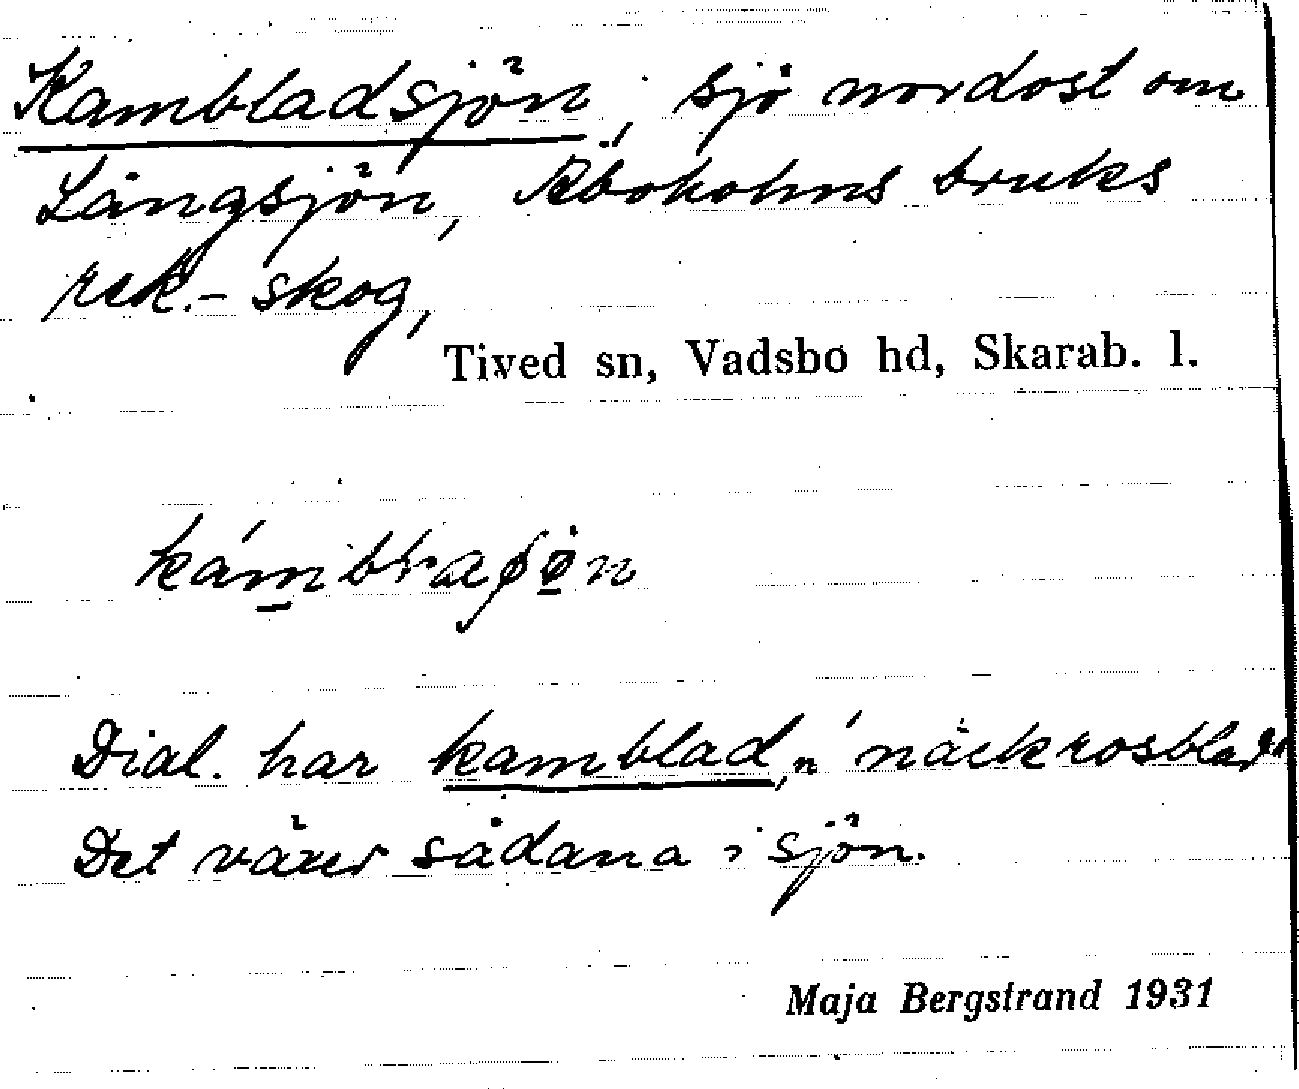 Kambladsjön, sjö nordost om
Långsjön, Aboholms bruks
rek.-skog,
Tived sn, Vadsbo hd, Skarab. l.
Dial. har kamblad, n 'näckrosblad'
Det växer sådana i sjön.
Maja Bergstrand 1931